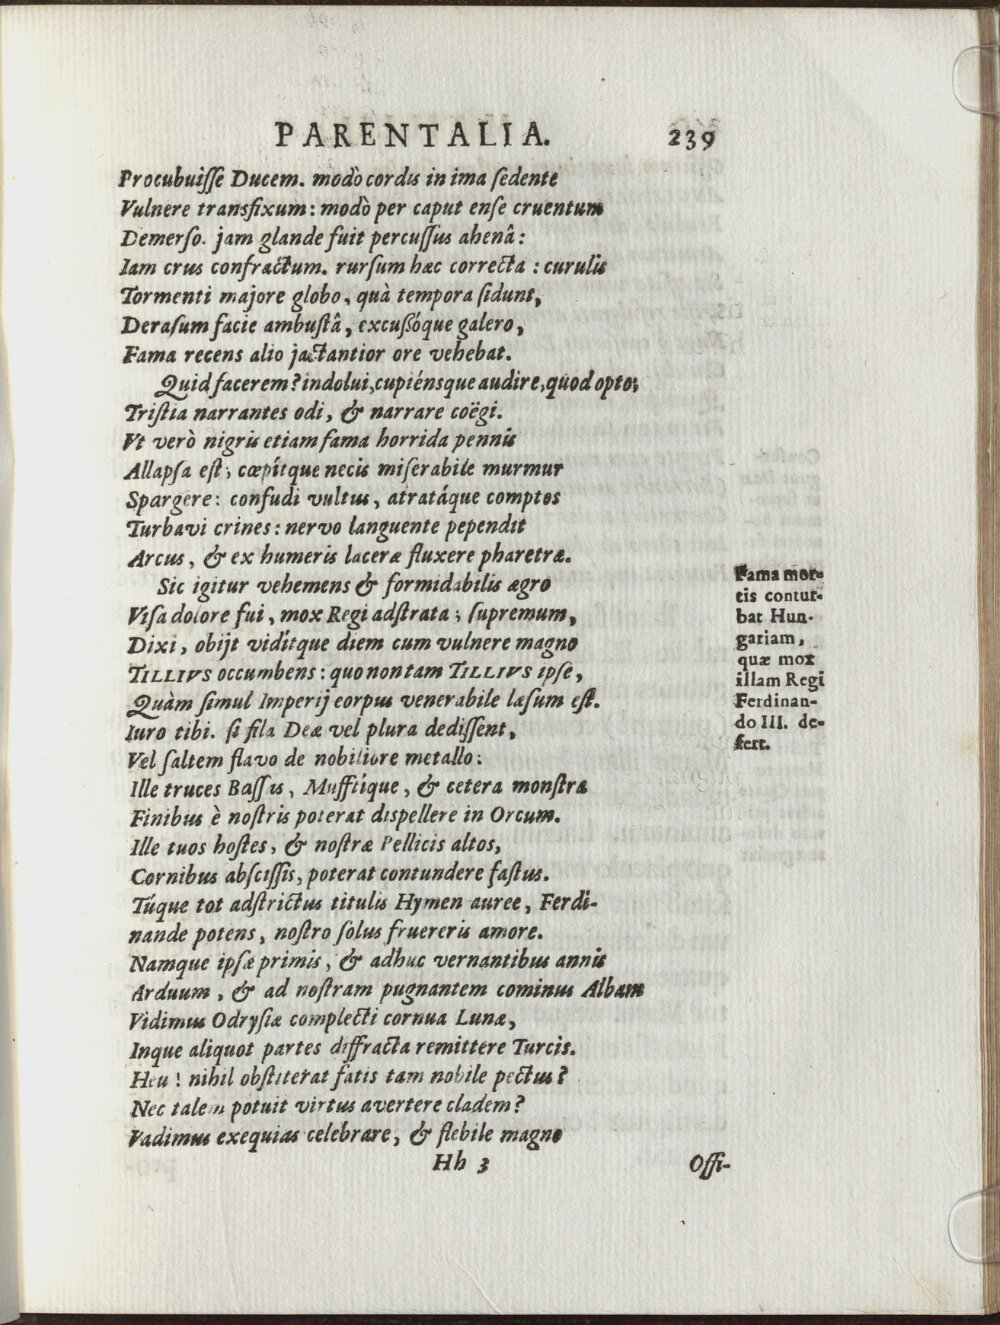 PARENTALIA. 239
Procubuisse Ducem. modò cordis in ima sedente
Vulnere transfixum: modò per caput ense cruentum
Demerso. jam glande fuit percussus ahenâ:
Iam crus confractum. rursum hæc correcta: curulis
Tormenti majore globo, quà tempora sidunt,
Derasum facie ambustâ, excussóque galero,
Fama recens alio jactantior ore vehebat.
Quid facerem? indolui, cupiénsque audire, quod opto;
Tristia narrantes odi, & narrare coëgi.
Vt verò nigris etiam fama horrida pennis
Allapsa est; cœpítque necis miserabile murmur
Spargere: confudi vultus, atratáque comptos
Turbavi crines: nervo languente pependit
Arcus, & ex humeris laceræ fluxere pharetræ.
Sic igitur vehemens & formidabilis ægro
Visa dolore fui, mox Regi adstrata; supremum,
Dixi, obijt vidítque diem cum vulnere magno
TILLIVS occumbens: quo non tam TILLIVS ipse,
Quàm simul Imperij corpus venerabile læsum est.
Iuro tibi. si fila Deæ vel plura dedissent,
Vel saltem flavo de nobiliore metallo:
Ille truces Bassas, Mufftíque, & cetera monstra
Finibus è nostris poterat dispellere in Orcum.
Ille tuos hostes, & nostræ Pellicis altos,
Cornibus abscissis, poterat contundere fastus.
Túque tot adstrictus titulis Hymen auree, Ferdi-
nande potens, nostro solus fruereris amore.
Namque ipsæ primis, & adhuc vernantibus annis
Arduum, & ad nostram pugnantem cominus Albam
Vidimus Odrysiæ complecti cornua Lunæ,
Inque aliquot partes diffracta remittere Turcis.
Heu! nihil obstiterat fatis tam nobile pectus?
Nec talem potuit virtus avertere cladem?
Vadimus exequias celebrare, & flebile magno
Hh 3 Offi-
Fama mor-
tis contur-
bat Hun-
gariam,
quæ mox
illam Regi
Ferdinan-
do III. de-
fert.